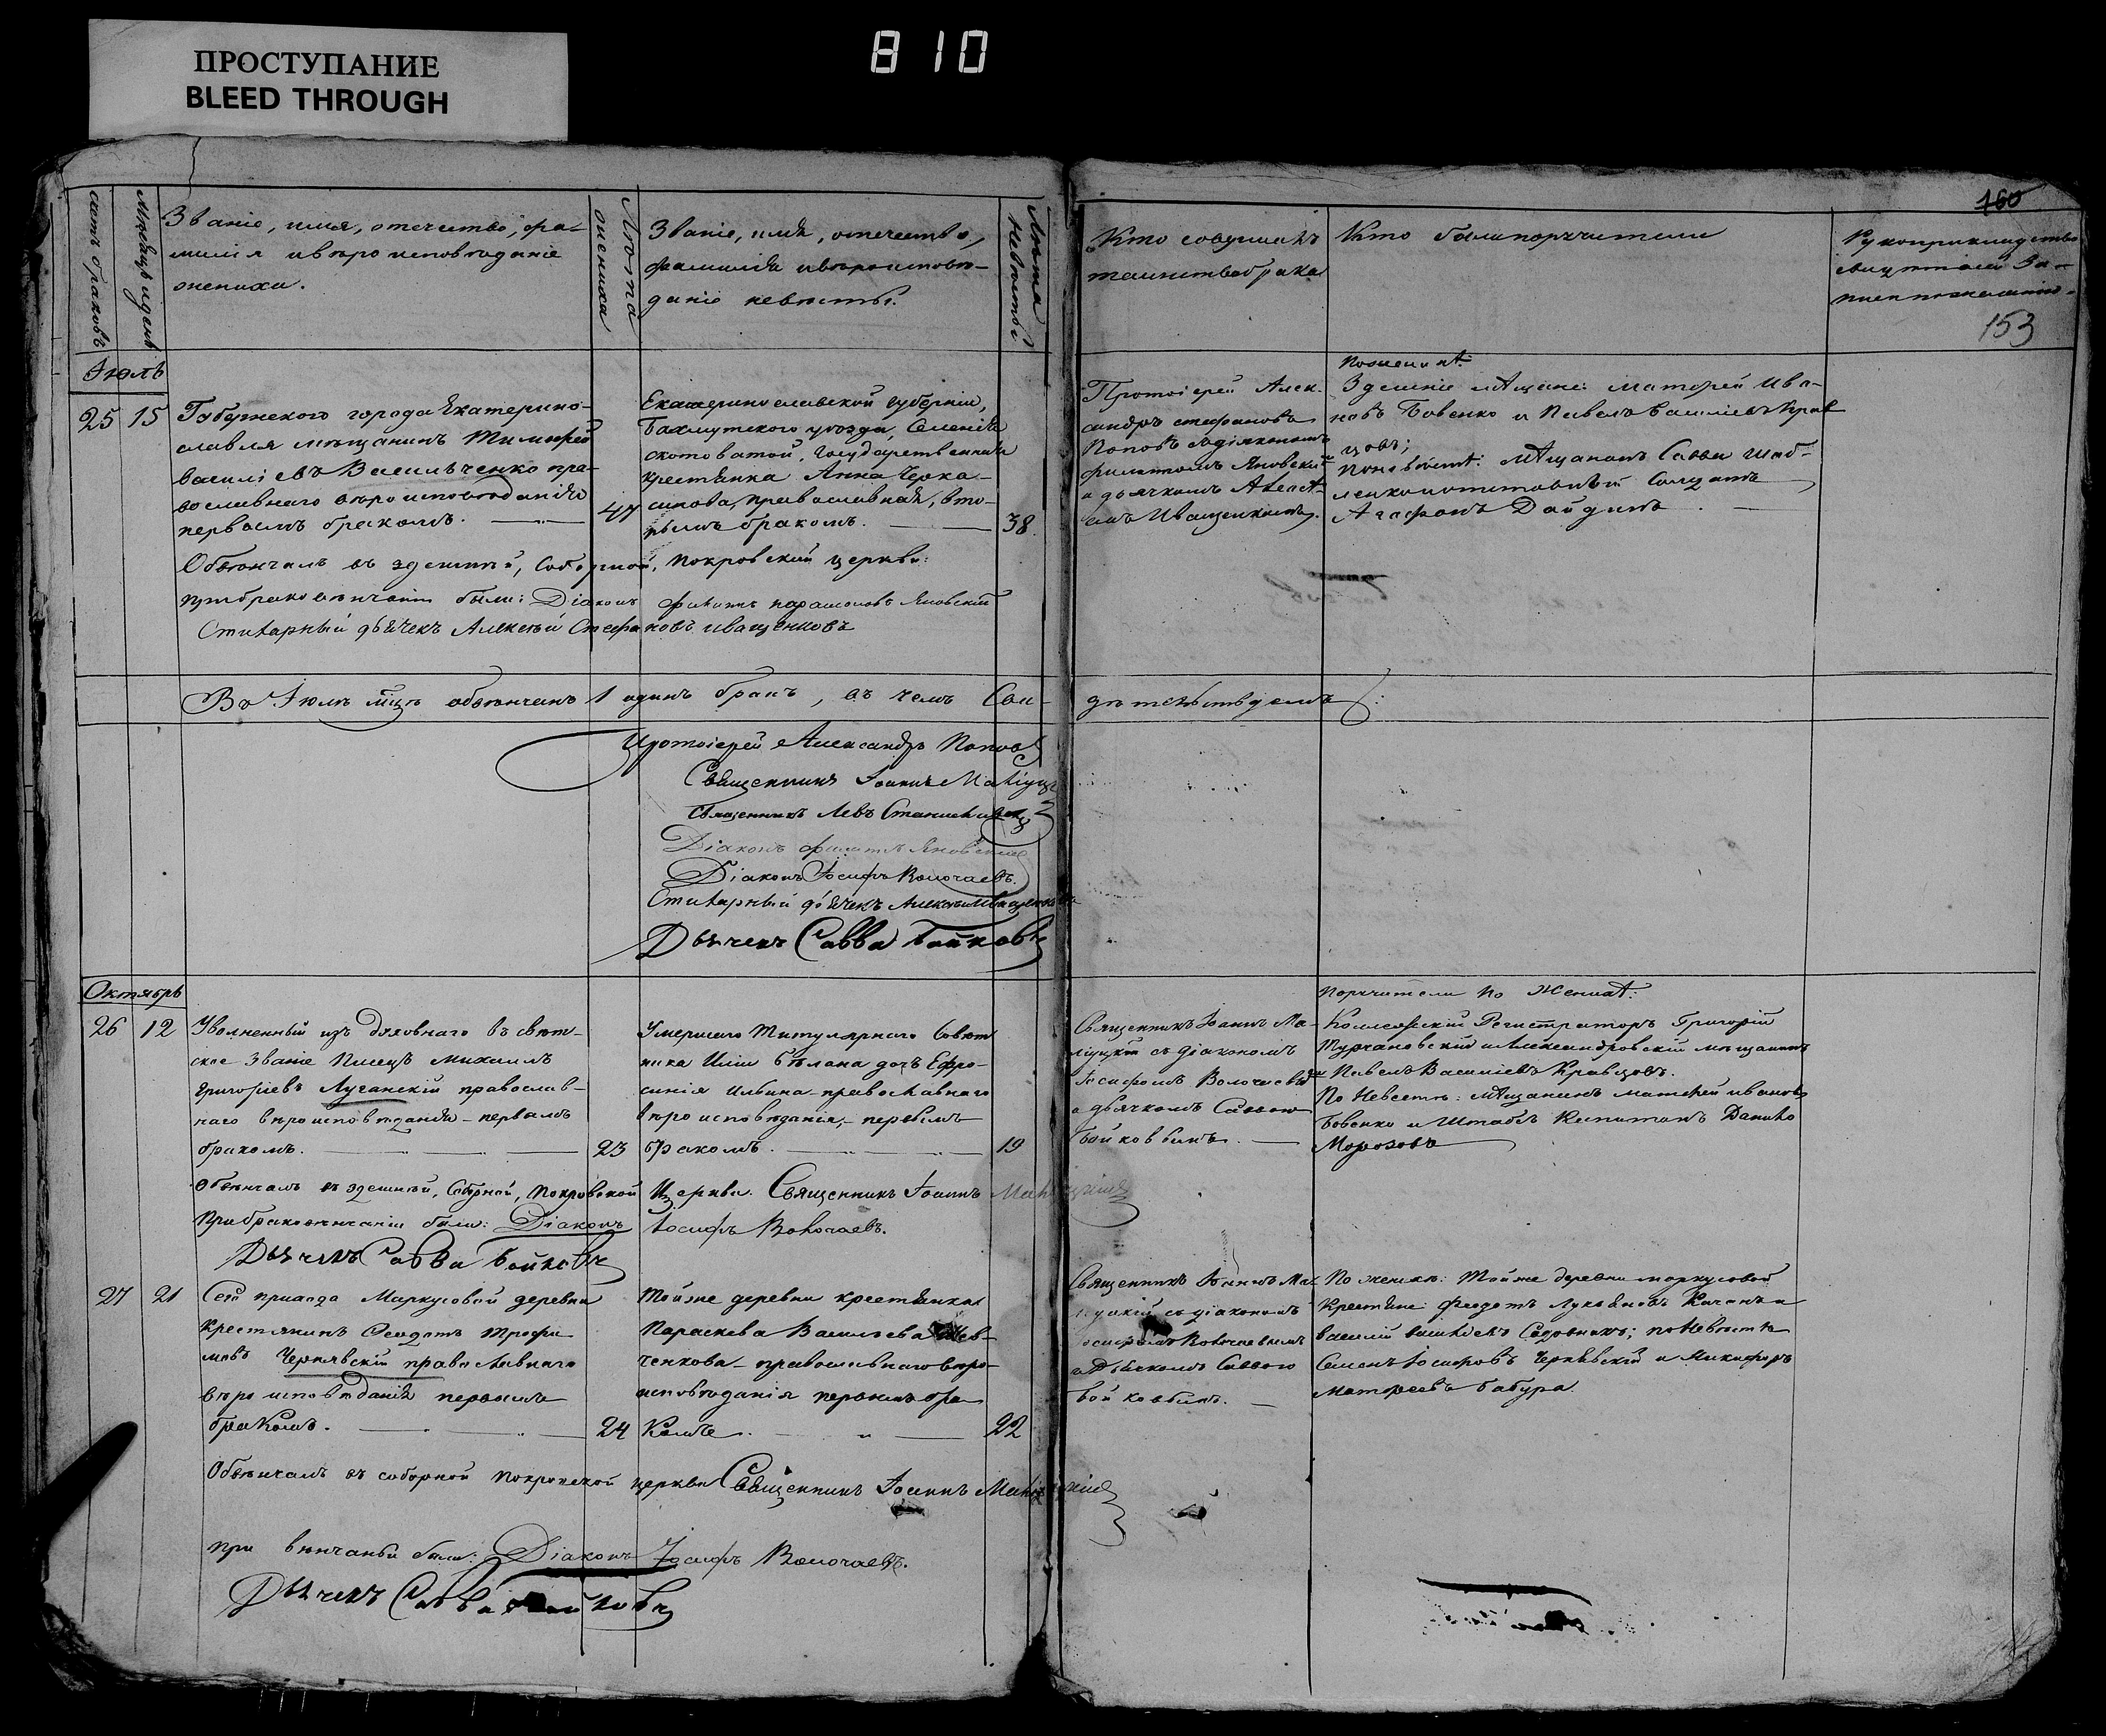 ПРОСТУПАНИЕ
BLEED THROUGH
810
160
153
счетъ браковъ
Мѣсяцъ и день
Званіе, имя, отечество, фа-
милія и вѣроисповѣданіе
жениха.
Лѣта
жениха
Званіе, имя, отечество,
фамилія и вѣроисповѣ-
даніе невѣсты.
Лѣта
Невѣсты
Кто совершалъ
таинство брака
Кто были поручители
Рукоприкладство
свидѣтелей За-
писи по желанію.
Іюль
25
15
города Екатерино-
славля мѣщанинъ Тимофей
Василіевъ Васильченко пра-
вославнаго вѣроисповѣданія
первымъ бракомъ.
47
Екатеринославской губерніи,
Бахмутскаго уѣзда, Селенія
скотоватой, Государственная
крестьянка Анна Черка-
сикова, православная, вто-
рымъ бракомъ.
38
Протоіерей Алек-
сандръ Стефановъ
Поповъ съ діякономъ
Филиппомъ Яновски
и дьячкомъ Алексѣ-
емъ Иващенковымъ.
По женихѣ:
Здешніе мѣщане: Матфей Ива-
новъ Бовенко и Павелъ Василіевъ Крав
цовъ;
По невѣстѣ: Мѣщанинъ Савва
Солдатъ
Агафонъ Дайдинъ
Обвѣнчалъ въ здешней, Соборной, Покровской церкви:
При браковѣнчаніи были: Діаконъ Филиппъ Парамоновъ Яновскій
Стихарный дьячекъ Алексѣй Стефановъ Иващенковъ
Въ Іюлѣ м-цѣ обвѣнчанъ 1 одинъ бракъ, въ чемъ Сви-
дѣтельствуемъ:
Протоіерей Александръ Поповъ
Священникъ Іоаннъ
Священникъ Левъ
Діаконъ Филиппъ Яновскій
Діаконъ Іосифъ Волочаевъ.
Стихарный дьячекъ Алексѣй Иващенковъ
Дьячекъ Савва Бойковъ
Октябрь
26
12
Уволненный изъ Духовнаго въ свѣт-
ское Званіе Писецъ Михаилъ
Григоріевъ Лучанскій православ-
наго вѣроисповѣданія - первымъ
бракомъ.
23
Умершаго Титулярнаго Совѣт
ника Иліи Бѣлана дочь Ефро-
синія Ильина православнаго
вѣроисповѣданія, - первымъ
бракомъ.
19
Священникъ Іоаннъ Ма-
съ діакономъ
Іосифомъ Волочаевымъ
и дьячкомъ Саввою
Бойковымъ.
Поручители по Женихѣ:
Коллежскій Регистраторъ Григорій
и Александровскій мѣщанинъ
Павелъ Василіевъ Кравцовъ.
По Невѣстѣ: Мѣщанинъ Матфей Ивановъ
Бовенко и Штабсъ Капитанъ Данило
Морозовъ
Обвѣнчалъ въ здешней, Соборной, Покровской Церкви. Священникъ Іоаннъ
При браковѣнчаніи были: Діаконъ Іосифъ Волочаевъ.
Дьячекъ Савва Бойковъ
27
21
Сего прихода Маркусовой деревни
Крестьянинъ Феодотъ Трофи-
мовъ Чернявскій православнаго
вѣроисповѣданія первымъ
бракомъ.
24
Той же деревни крестьянка
Параскева Васильева Шев-
ченкова - православнаго вѣро-
исповѣданія первымъ бра
комъ.
22
Священникъ Іоаннъ Ма-
съ діакономъ
Іосифомъ Волочаевымъ
и Дьячкомъ Саввою
Бойковымъ.
По женихѣ: Той же деревни Маркусовой
Крестьяне: Феодотъ Лукьяновъ Качанъ и
Василій Садовникъ; по Невѣстѣ
Семенъ Іосифовъ Чернявскій и Никифоръ
Матфеевъ Бабура.
Обвѣнчалъ въ соборной Покровской церкви Священникъ Іоаннъ
При вѣнчаніи были: Діаконъ Іосифъ Волочаевъ.
Дьячекъ Савва Бойковъ